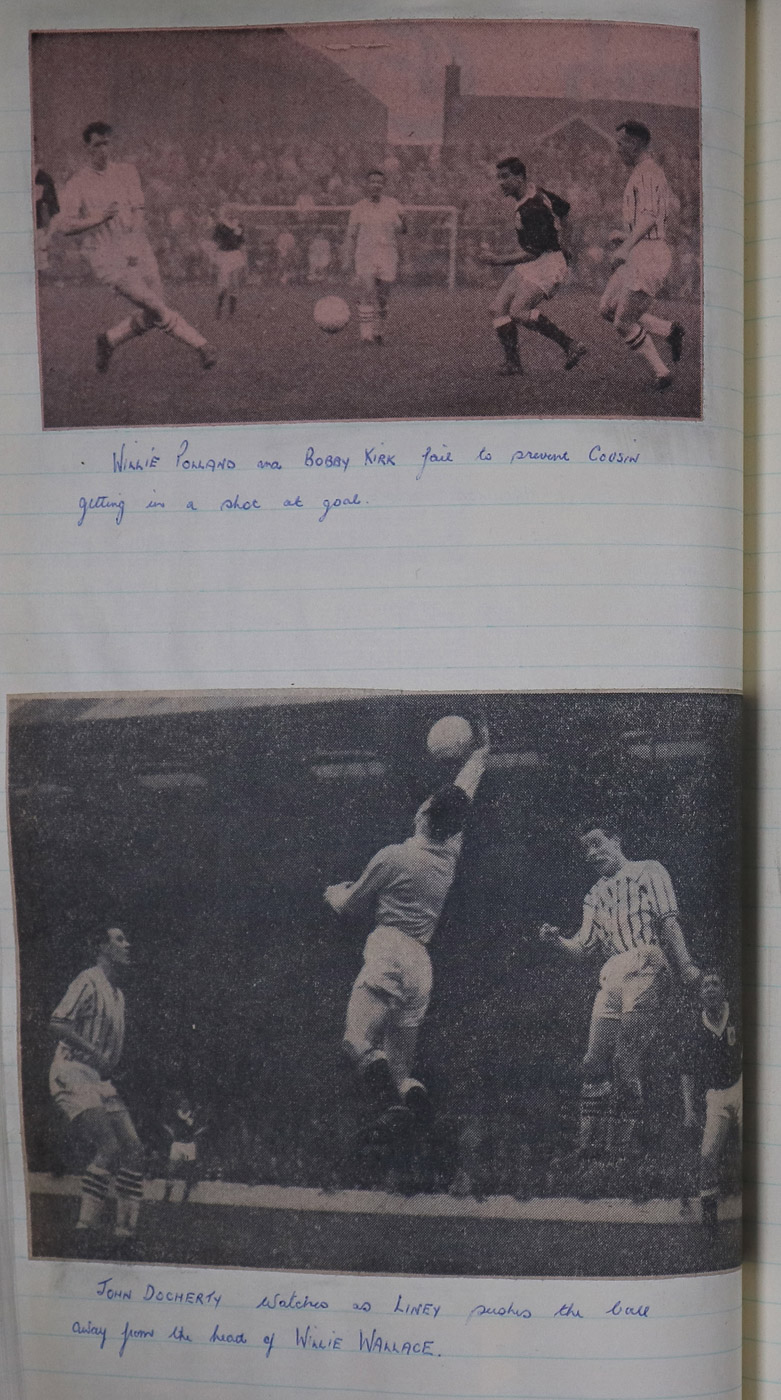 WILLIE POLLAND and BOBBY KIRK fail to prevent COUSIN
getting in a shot at goal.
JOHN DOCHERTY watches as LINEY pushes the ball
away from the head of WILLIE WALLACE.